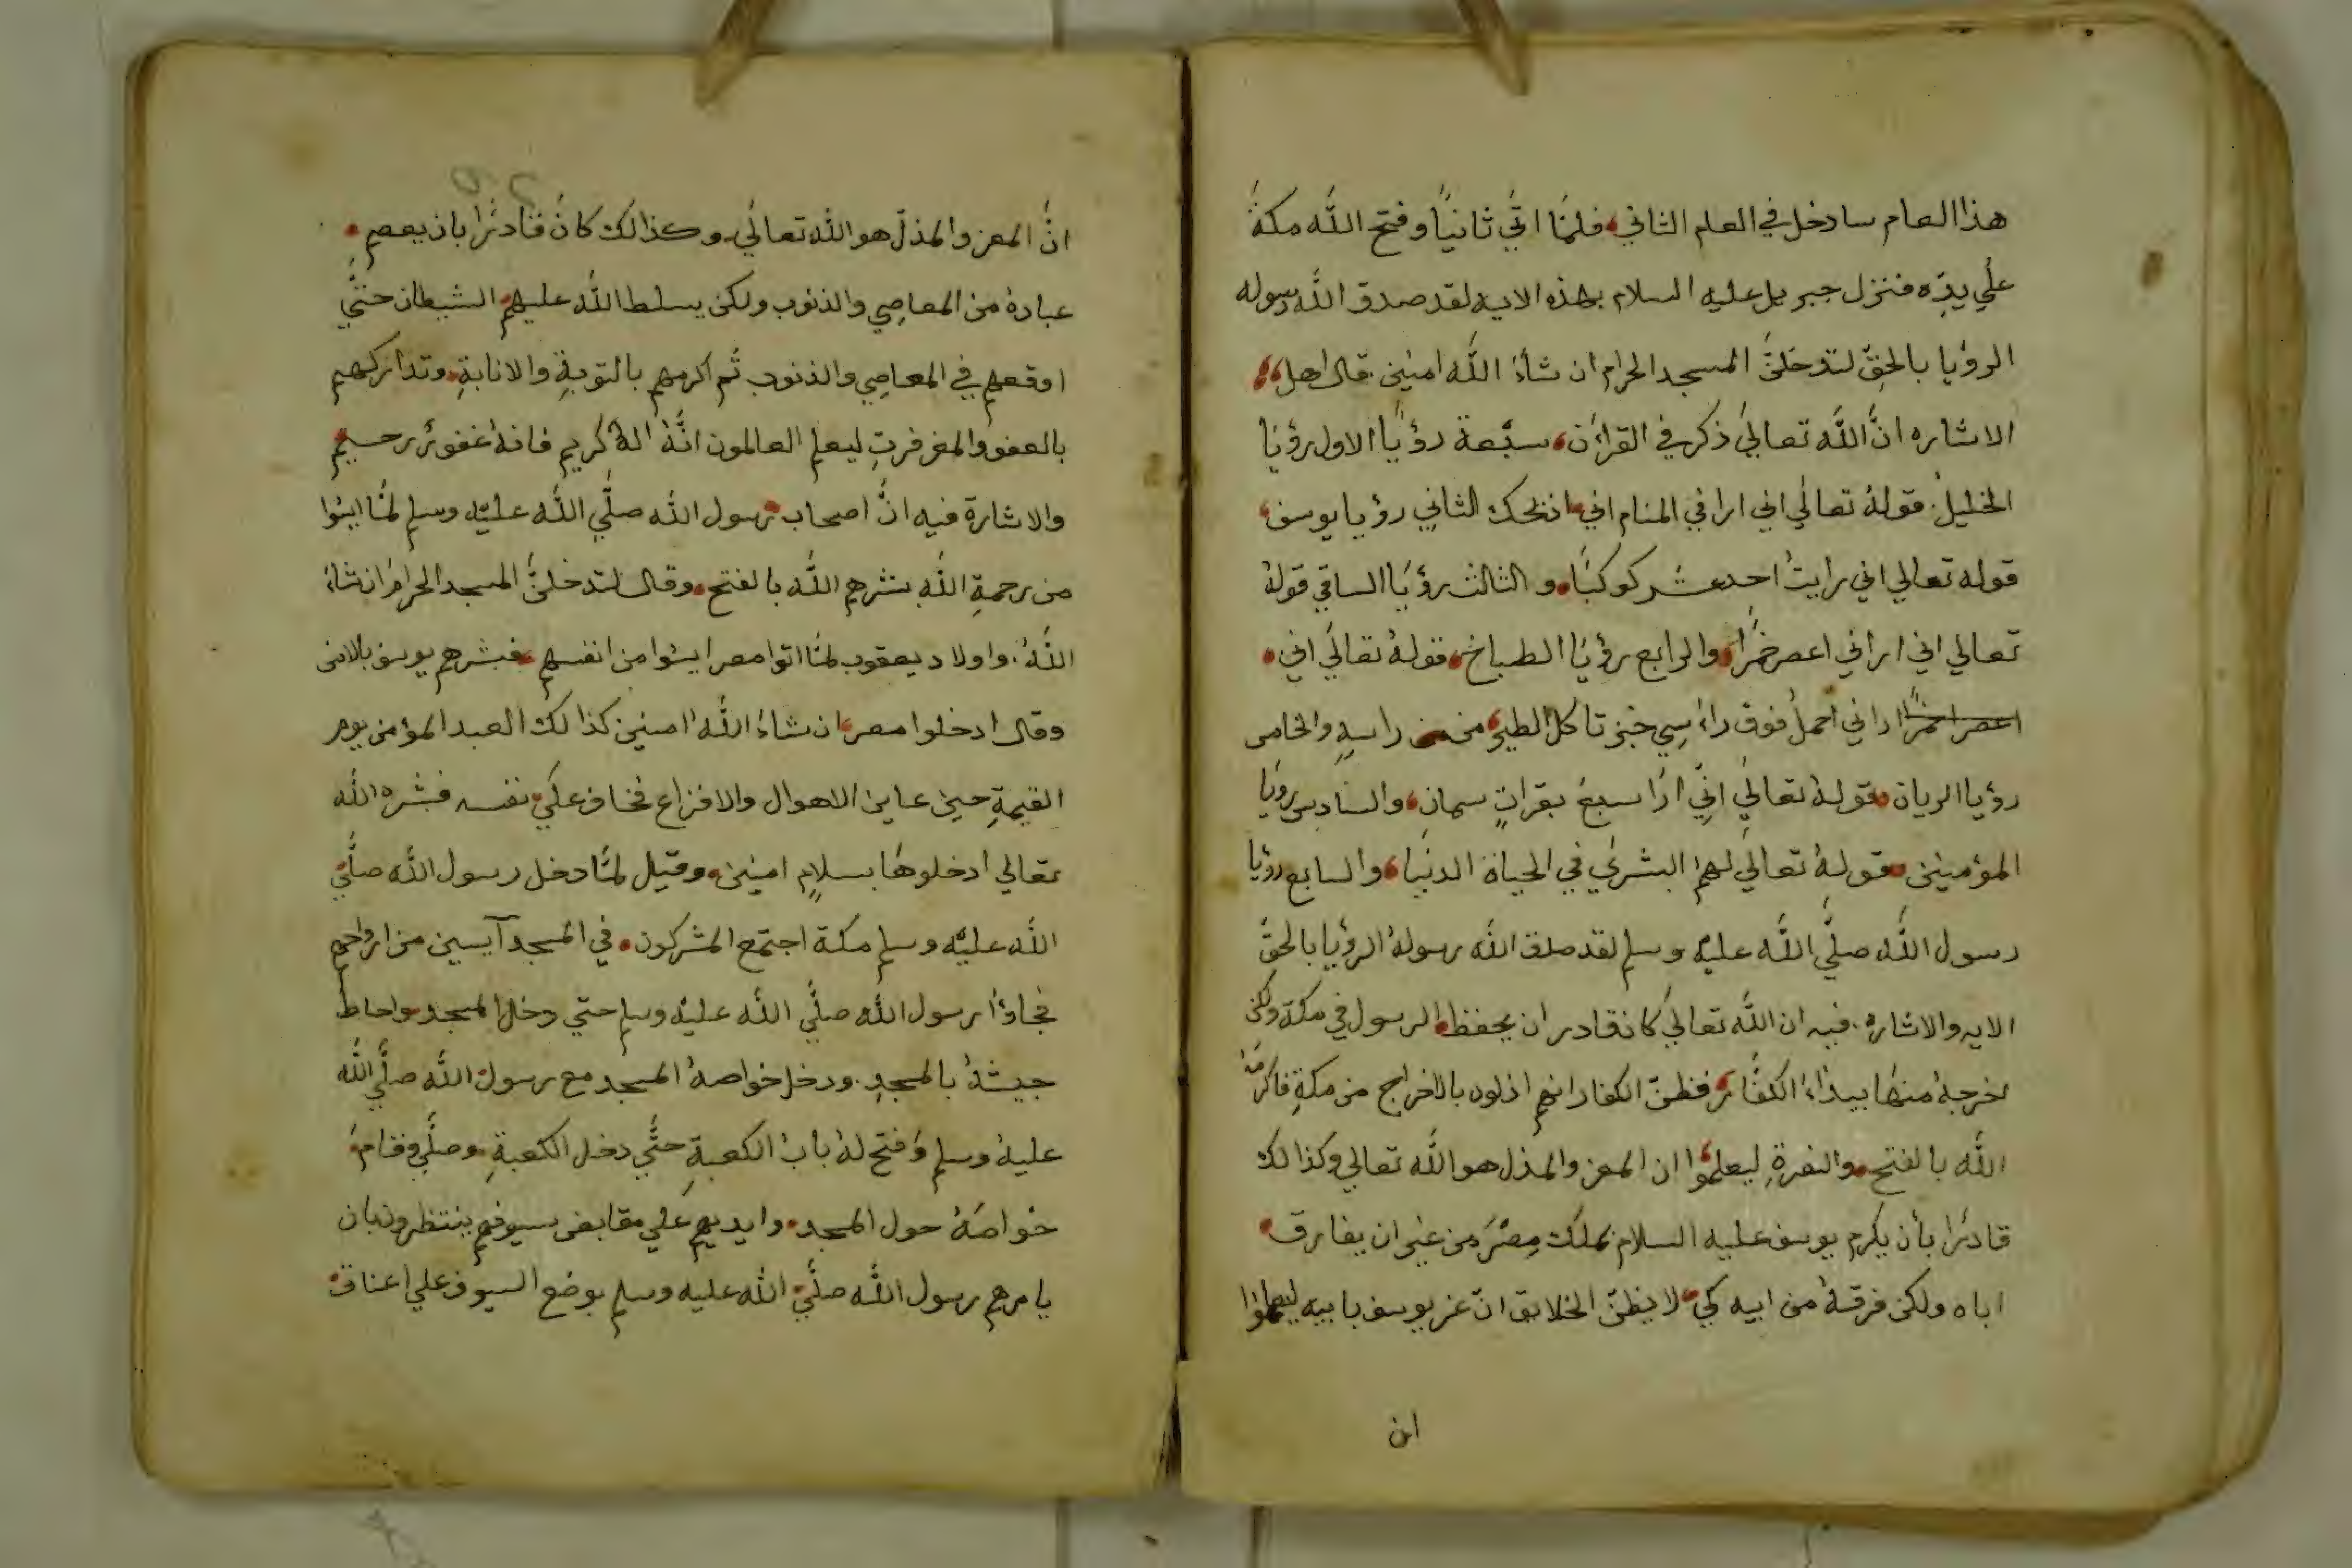 هذا العام سادخل في العام الثاني فلمّا اتٰي ثانيًا وفتح اللّٰه مكةَ
علٰي يدِّه فنزل جبريل عليه السلام بهذه الايه لقد صدق اللّٰه رسوله
الرؤيا بالحقّ لتدخلنَّ المسجد الحرام ان شآءَ اللّٰه امنين قال اهل
الاشاره انَّ اللّٰه تعالىٰ ذكر في القراٰن سبعة رؤيًا الاول رؤيَا
الخليلُ قولهُ تعالٰي اني ارا في المنام اني اذبحك الثاني رؤيا يوسف
قوله تعالي اني رايتُ احد عشر كوكبًا والثالث رؤيَا الساقي قولهُ
تعالي اني اراني اعصر خمرًا والرابع رؤيَا الطباخ قولهُ تعالٰي اني
اعصر خمرًا اراني احملُ فوق راءسِي خبز تاكل الطير من من راسهِ والخامس
رؤيا الريان قولهُ تعالٰي انِّي ارَا سبعَ بقراتٍ سمانٍ والسّادس رؤيَا
المؤمنين قولهُ تعالٰي لهم البشرٰي في الحياة الدنيا والسابع رؤيا
رسول اللّٰه صلَّي اللّٰه عليهُ وسلم لقد صدق اللّٰه رسولهُ الرؤيا بالحقّ
الايه والاشاره فيه ان اللّٰه تعالٰي كان قادر ان يحفظ الرسول في مكة ولكن
اخرجهُ منهَا بيذاءَ الكفّار فظنّ الكفار انهم اذلوه بالاخراج من مكةِ فاكرمهُ
اللّٰه بالفتح والنصرةِ ليعلموا ان المعز والمذل هو اللّٰه تعالي وكذالك
قادرًا بأن يكرم يوسف عليه السلام بملك مِصْرَ من غير ان يفارق
اباه ولكن فرقهُ من ابيه كي لا يظنّ الخلايق انّ عز يوسف بابيه ليعلموا
ان
انَّ المعز والمذلّ هو اللّٰه تعالٰي وكذالك كانَ قادرًا بان يعصم
عبادهُ من المعاصِي والذنوب ولكن يسلط اللّٰه عليهم الشيطان حتّٰي
اوقعهم في المعاصِي والذنوب ثُم اكرمهم بالتوبةِ والانابةِ وتداركهم
بالعفو والمغرفرتِ ليعلم العالمون انَّهُ الهُ كريم فانهُ غفورٌ رحيم
والاشارة فيه انَّ اصحاب رسول اللّٰه صلَّي اللّٰه عليهُ وسلم لمَّا ايئوا
من رحمةِ اللّٰهِ بشرهم اللّٰه بالفتح وقال لتدخلنَّ المسجد الحرامَ ان شاءَ
اللّٰهُ واولاد يعقوب لمَّا اتوا مصر ايئوا من انفسهم فبشرهم يوسف بالامن
وقال ادخلوا مصر ان شاءَ اللّٰه امنين كذالك العبد المؤمن يوم
القيٰمةِ حين عاين الاهوال والافزاع فخاف علٰي نفسه فبشره اللّٰه
تعالي ادخلوهَا بسلامٍ امنين وقيل لمّا دخل رسول اللّٰه صلَّي
اللّٰه عليهُ وسلم مكة اجتمع المشركون في المسجد آيسين من ارواحهم
فجاؤا رسول اللّٰه صلَّي اللّٰه عليهُ وسلم حتي دخل المسجد واحاط
جيشهُ بالمسجدِ ودخل خواصهُ المسجد مع رسول اللّٰه صلَّي اللّٰه
عليهُ وسلم وَفتح لهُ بابُ الكعبةِ حتَّي دخل الكعبةِ وصلَّي وقام
خواصَهُ حول المسجد وايديهم علي مقابض سيوفهم ينتظرون بان
يامرهم رسول اللّٰه صلَّي اللّٰه عليه وسلم بوضع السيوف علي اعناق